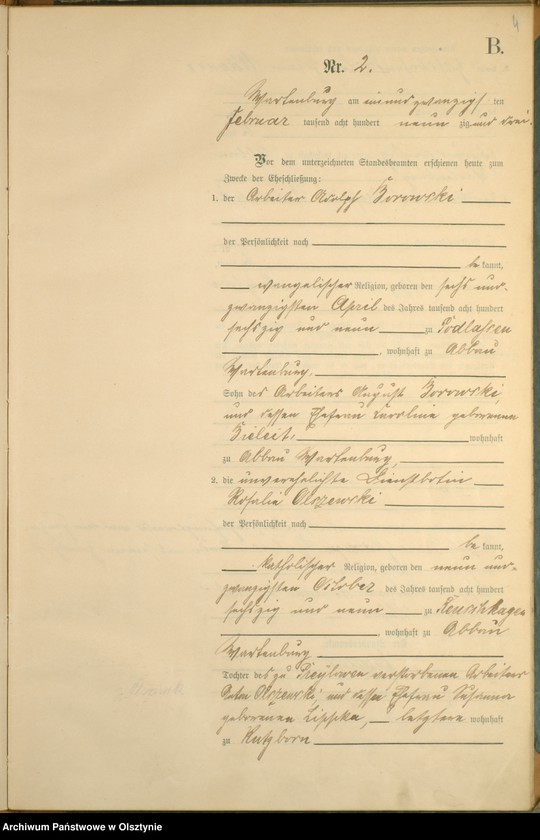 4
B.
Nr. 2.
Wartenburg am einundzwanzigsten
Februar tausend acht hundert neunzig und drei.
Vor dem unterzeichneten Standesbeamten erschienen heute zum
Zwecke der Eheschließung:
1. der Arbeiter Adolph Borowski
der Persönlichkeit nach
be kannt,
evangelischer Religion, geboren den sechs und
zwanzigsten April des Jahres tausend acht hundert
sechszig und neun zu Podlassen
, wohnhaft zu Abbau
Wartenburg,
Sohn des Arbeiters August Borowski,
und dessen Ehefrau Caroline geborenen
wohnhaft
zu Abbau Wartenburg,
2. die unverehelichte Dienstbotin
Rosalie Olszewski
der Persönlichkeit nach
be kannt,
katholischer Religion, geboren den neun und
zwanzigsten October des Jahres tausend acht hundert
sechszig und neun zu
, wohnhaft zu Abbau
Wartenburg
Tochter des zu Preylowen verstorbenen Arbeiters
Olszewski, und dessen Ehefrau Susanna
geborenen letztere wohnhaft
zu
Archiwum Państwowe w Olsztynie